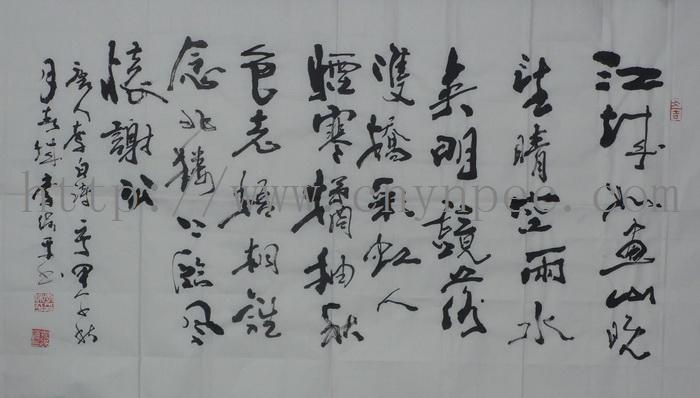 江城如畫山晚
望晴空兩水
夾明鏡落
雙橋彩虹人
煙寒橘柚秋
色老梧桐誰
念北樓上臨風
懷謝公
唐人李白詩
月